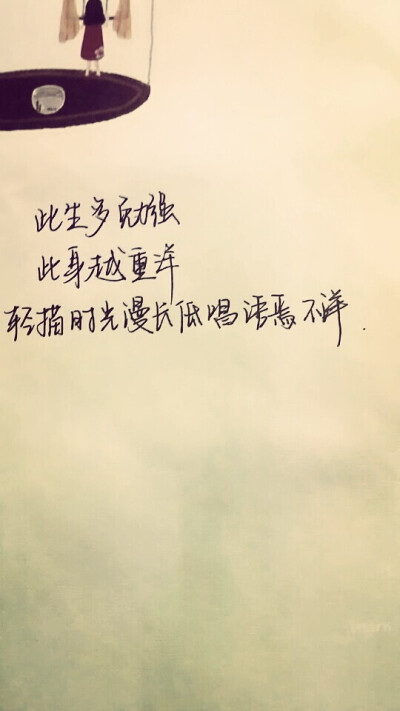 此生多勉强
此身越重洋
轻描时光漫长低唱语焉不详.